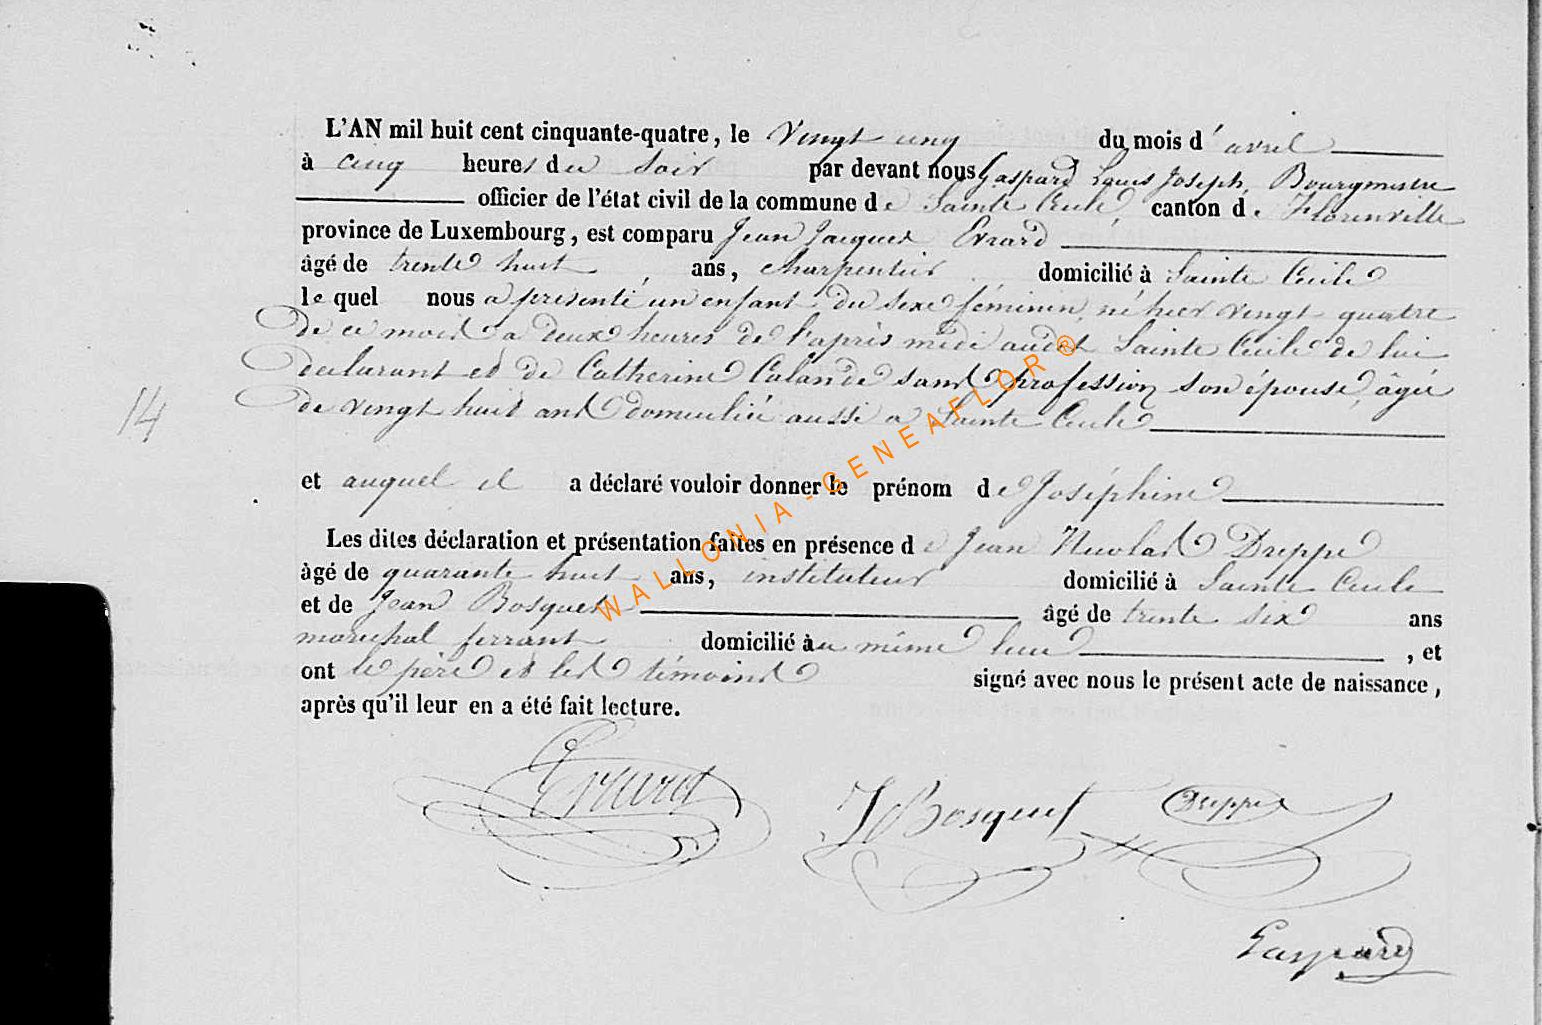 L'AN mil huit cent cinquante-quatre, le Vingt cinq du mois d'avril
à cinq heures du soir par devant nous Gaspard Louis Joseph, Bourgmestre
officier de l'état civil de la commune de Sainte Cécile, canton de Florenville
province de Luxembourg, est comparu Jean Jacques Evrard
âgé de trente huit ans, charpentier domicilié à Sainte Cécile
le quel nous a présenté un enfant du sexe féminin, né hier vingt quatre
de ce mois a deux heures de l'après midi audit Sainte Cécile de lui
declarant et de Catherine Calande sans profession son épouse, âgée
de vingt huit ans domiciliée aussi a Sainte Cécile
14
et auquel il a déclaré vouloir donner le prénom de Joséphine
Les dites déclaration et présentation faites en présence de Jean Nicolas Dreppe
âgé de quarante huit ans, instituteur domicilié à Sainte Cécile
et de Jean Bosquet âgé de trente six ans
maréchal ferrant domicilié au même lieu, et
ont le père et les témoins signé avec nous le présent acte de naissance,
après qu'il leur en a été fait lecture.
Evrard
J Bosquet
Dreppe
Gaspard
WALLONIA-GENEAFLOR®